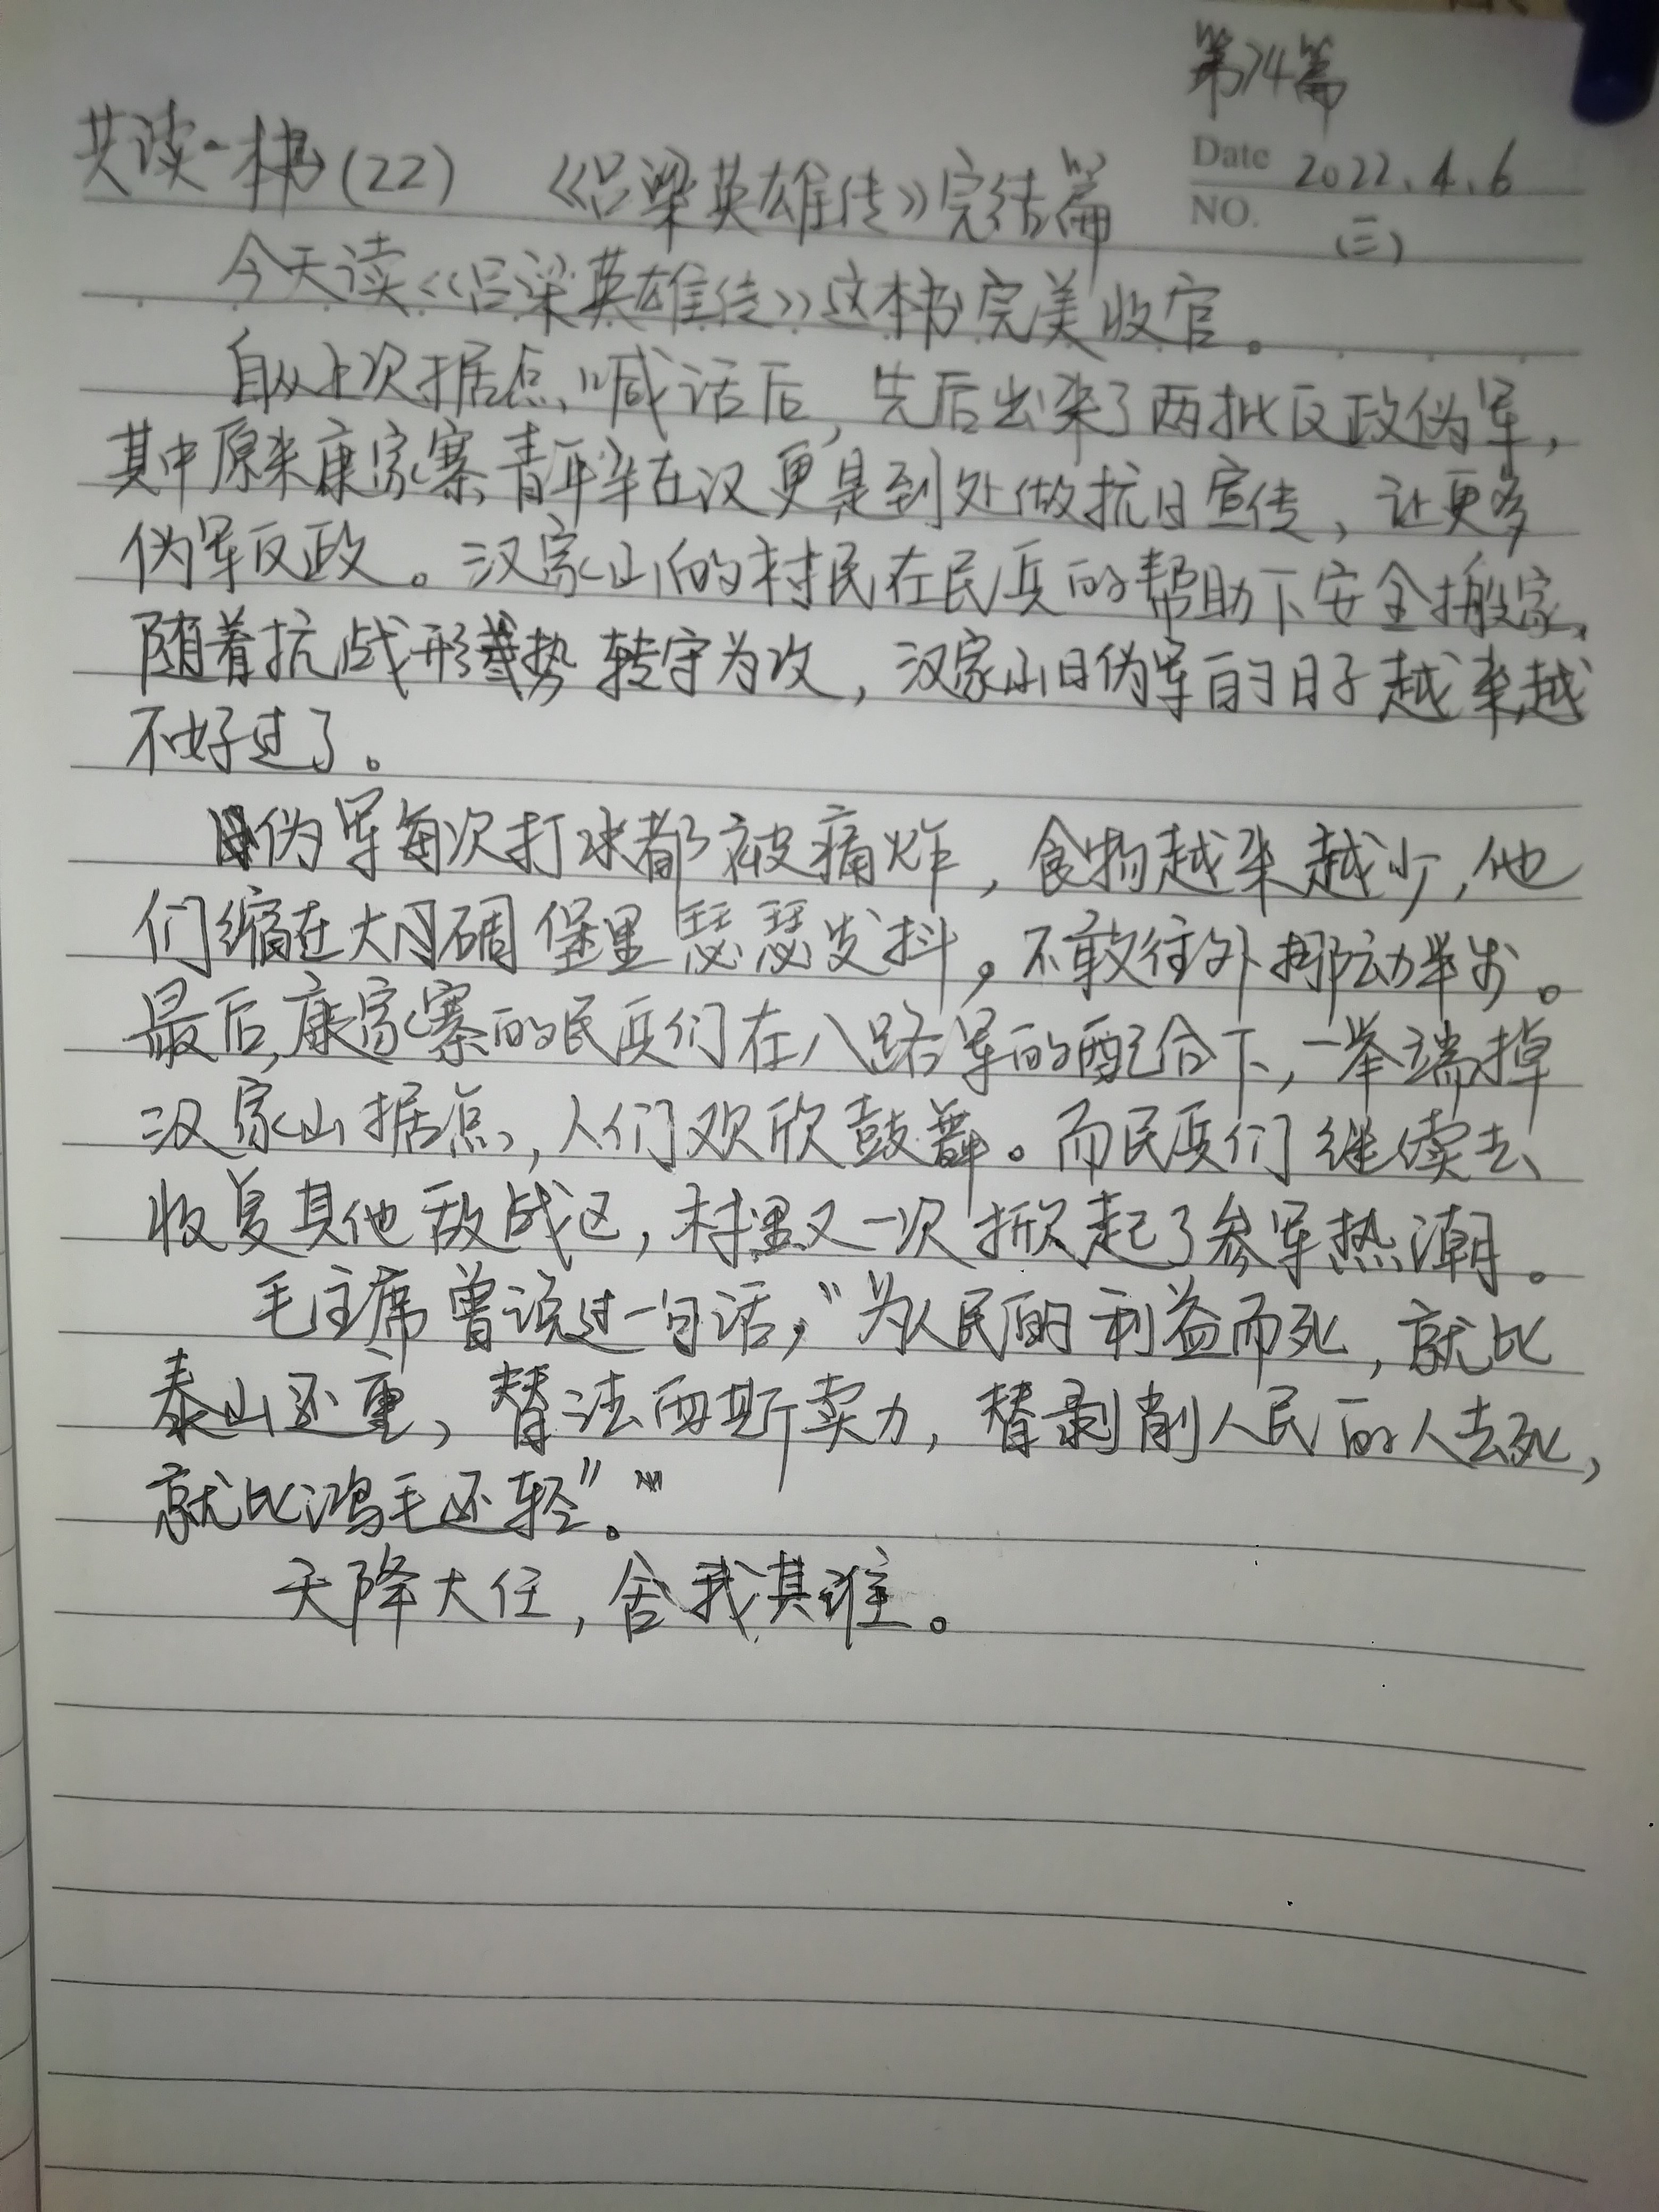 第74篇
Date 2022.4.6
NO. (三)
共读一本书(22) 《吕梁英雄传》完结篇
今天读《吕梁英雄传》这本书完美收官。
自从上次据点喊话后,先后出来了两批反政伪军,
其中原来康家寨青年辛在汉更是到处做抗日宣传,让更多
伪军反政。汉家山的村民在民兵的帮助下安全搬家,
随着抗战形势转守为攻,汉家山日伪军的日子越来越
不好过了。
日伪军每次打水都被痛炸,食物越来越少,他
们缩在大碉堡里瑟瑟发抖,不敢往外挪动半步。
最后,康家寨的民兵们在八路军的配合下,一举端掉
汉家山据点,人们欢欣鼓舞。而民兵们继续去
收复其他敌战区,村里又一次掀起了参军热潮。
毛主席曾说过一句话,“为人民的利益而死,就比
泰山还重,替法西斯卖力,替剥削人民的人去死,
就比鸿毛还轻”。
天降大任,舍我其谁。